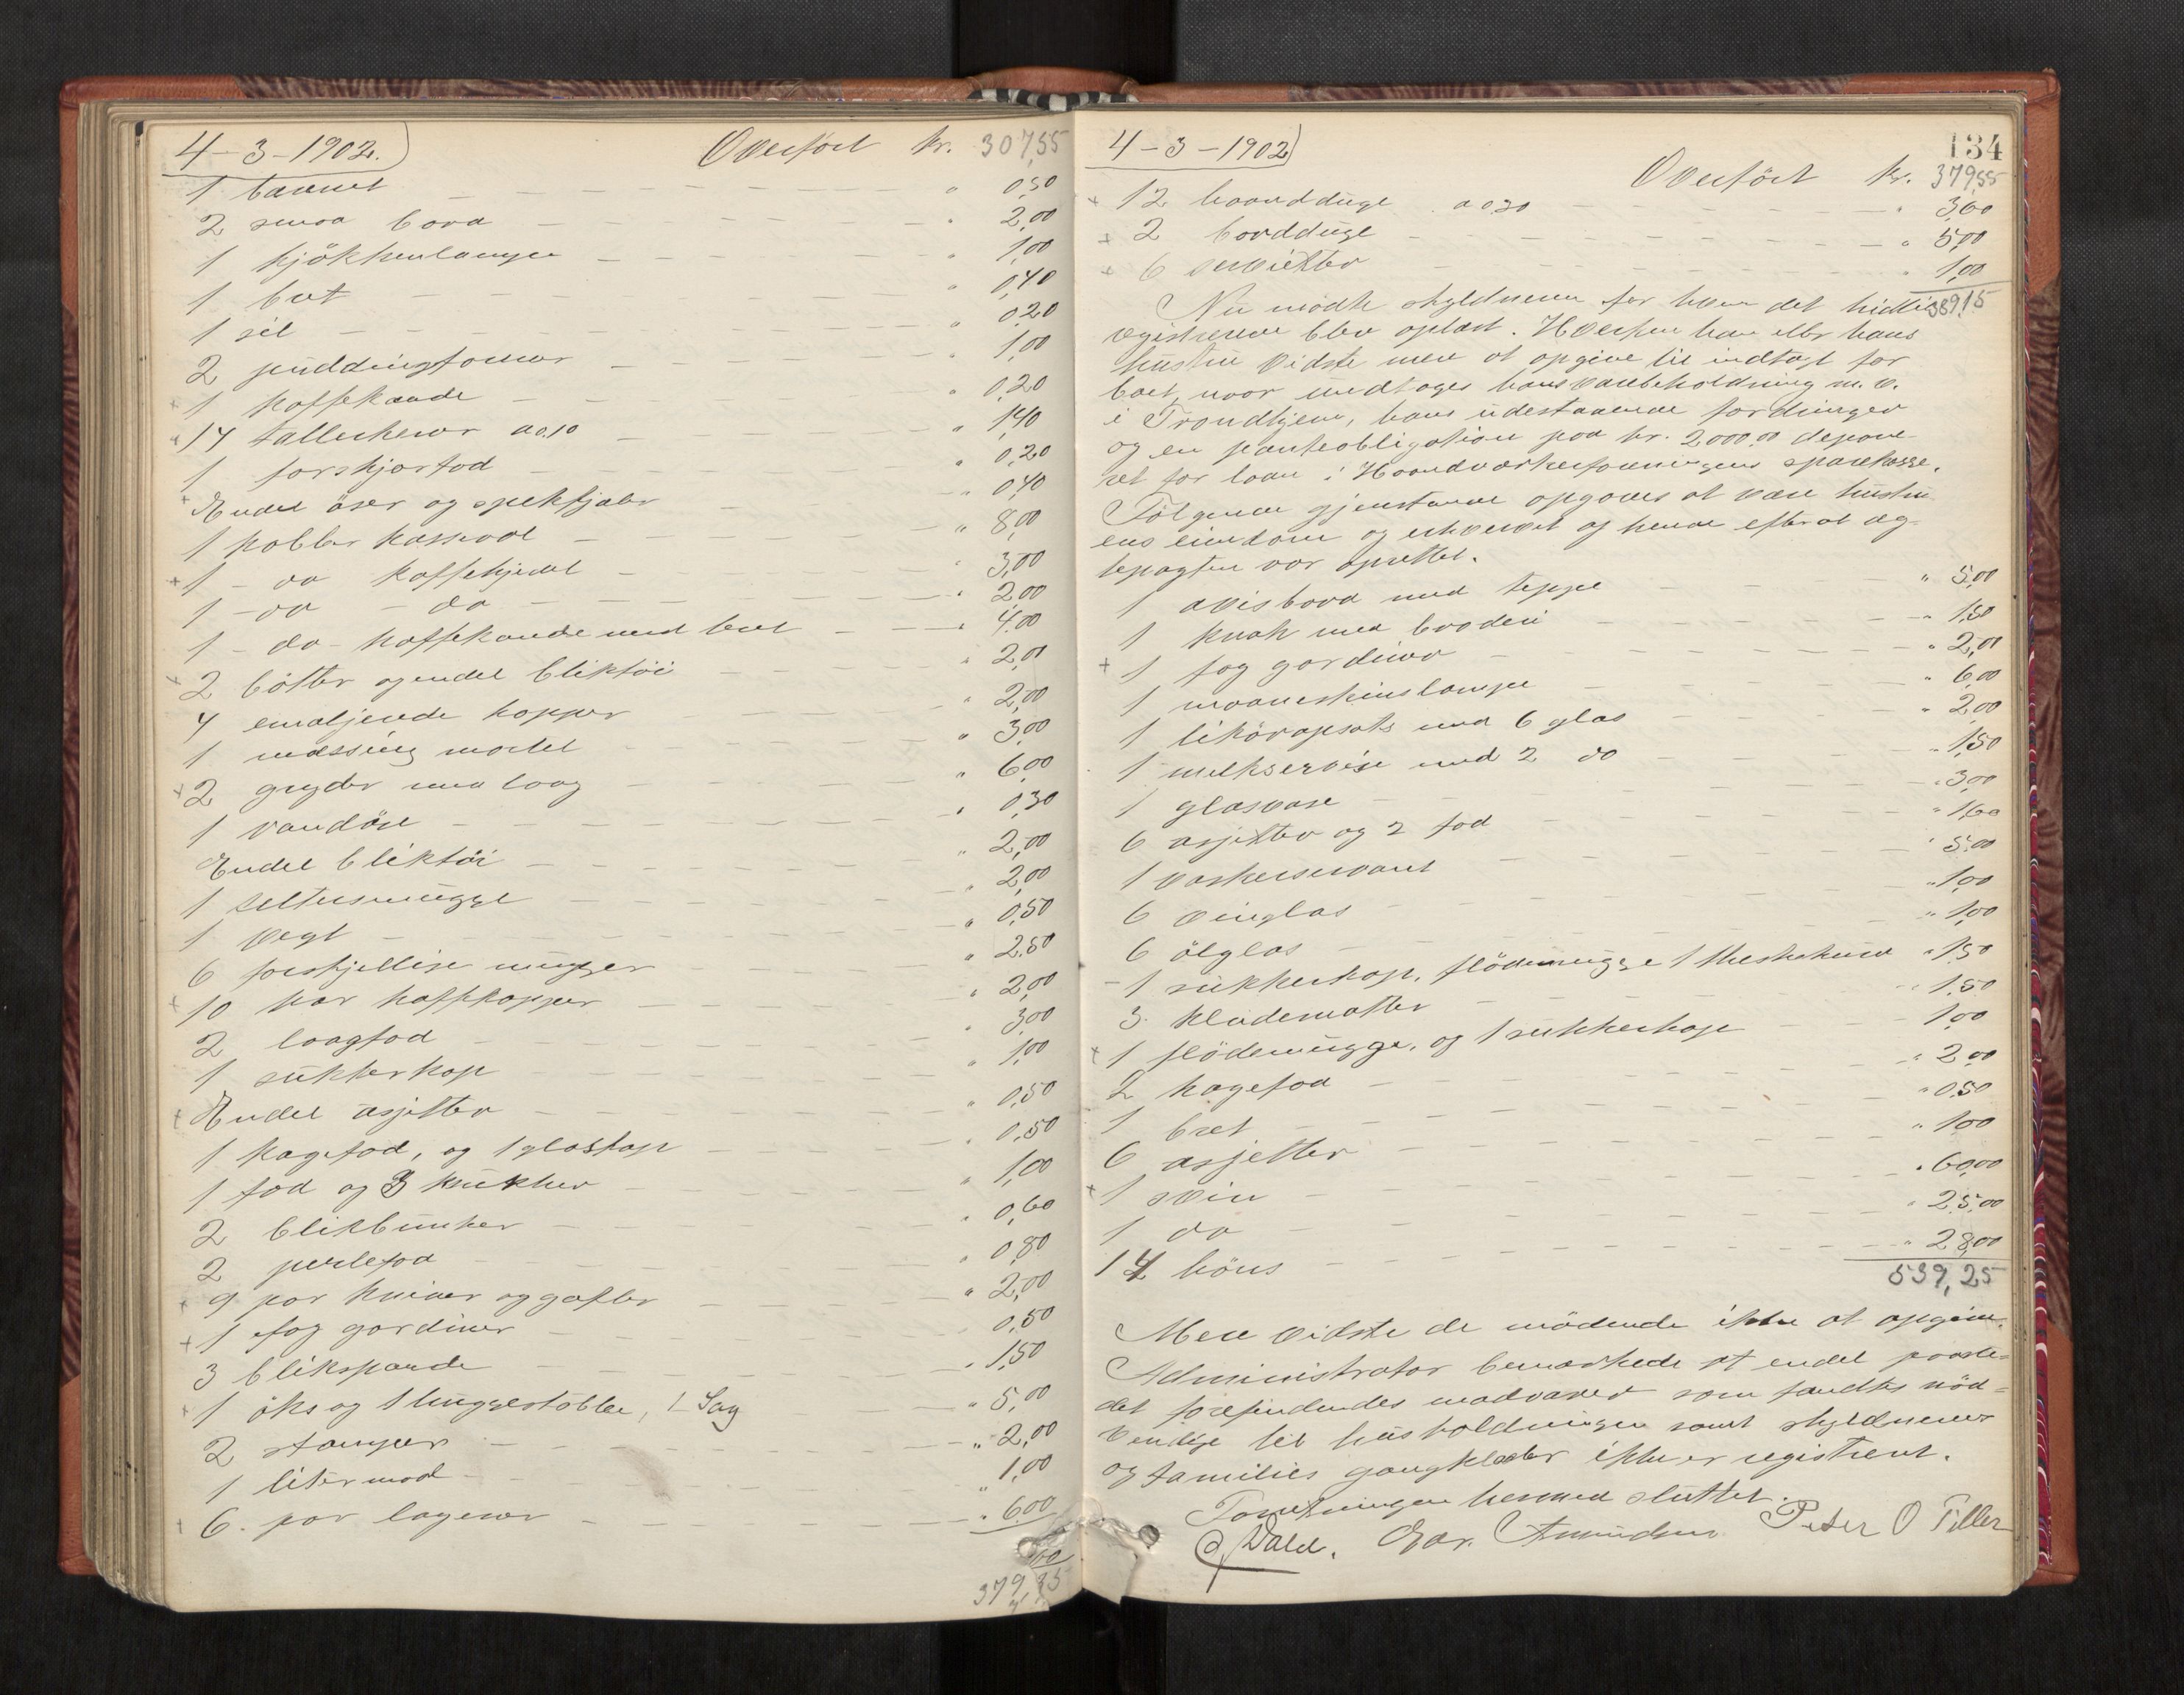 4-3-1902.) Overført kr. 307,55
1 tavuet " 0,50
2 smaa bord " 2,00
1 kjøkkenlampe " 1,00
1 but " 0,40
1 sil " 0,20
2 puddingformer " 1,00
+ 1 kaffekande " 0,20
" 14 tallerkener a 0,10 " 1,40
1 forskjærfad " 0,20
+ Endel øser og spekfjæler " 0,40
1 kobber kasserol " 8,00
+ 1 - do kaffekjedel " 3,00
1 - do - do " 2,00
1 - do - kaffekande med bret " 4,00
+ 2 bøtter og endel bliktøi " 2,00
4 emaljerede kopper " 2,00
1 messing mortel " 3,00
+ 2 gryder med laag " 6,00
1 vandøse " 0,30
Endel bliktøi " 2,00
1 seltersmugge " 2,00
1 vegt " 0,50
6 forskjellige mugger " 2,50
+ 10 par kaffekopper " 2,00
2 laagfad " 3,00
1 sukkerkop " 1,00
+ Endel asjetter " 0,50
1 kagefad, og 1 glaskop " 0,50
1 fad og 3 krukker " 1,00
2 blikbunker " 0,60
2 perlefad " 0,80
+ 9 par kniver og gafler " 2,00
+ 1 fag gardiner 0,50
3 blikspande " 1,50
+ 1 øks og 1 huggestabbe, 1 Sag " 5,00
2 stamper " 2,00
1 litermaal " 1,00
+ 6 par lagener " 6,00
379,35
134
4-3-1902) Overført kr. 379,55
+ 12 haandduge a 0 30 " 3,60
+ 2 bordduge " 5,00
+ 6 servietter " 1,00
Nu mødte skyldneren for hvem det hidtil 389,15
registrerede blev oplæst. Hverken han eller hans
hustru vidste mere at opgive til indtægt for
boet, naar undtages hans varebeholdning m. v.
i Trondhjem, hans udestaaende fordringer
og en panteobligation paa kr. 2000,00 depone-
ret for laan i Haandværkerforeningens sparekasse.
Følgende gjenstande opgaves at være hustru-
ens eiendom og erhvervet af hende efter at æg-
tepagten var oprettet.
1 avisbord med teppe " 5,00
1 knak med broderi " 1,50
+ 1 fag gardiner " 2,00
1 maaneskinslampe " 6,00
1 likøropsats med 6 glas " 2,00
1 melkservise med 2 do " 1,50
1 glasvase " 3,00
6 asjetter og 2 fad " 1,60
1 vaskeservant " 5,00
6 vinglas " 1,00
6 ølglas " 1,00
1 sukkerkop, flødemugge 1 theskekurv " 1,50
3 klædematter " 1,50
+ 1 flødemugge, og 1 sukkerkop 1,00
2 kagefad " 2,00
1 bret " 0,50
6 asjetter " 1,00
+ 1 svin " 60,00
1 do " 25,00
14 høns " 28,00
539,25
Mere vidste de mødende ikke at opgive.
Administrator bemærkede at endel paaste-
det forefindendes madvarer som fandtes nød-
vendige til husholdningen samt skyldnerens
og families gangklæder ikke er registreret.
Forretningen hermed sluttet.
Wald. Edv. Amundsen Peter O Tiller